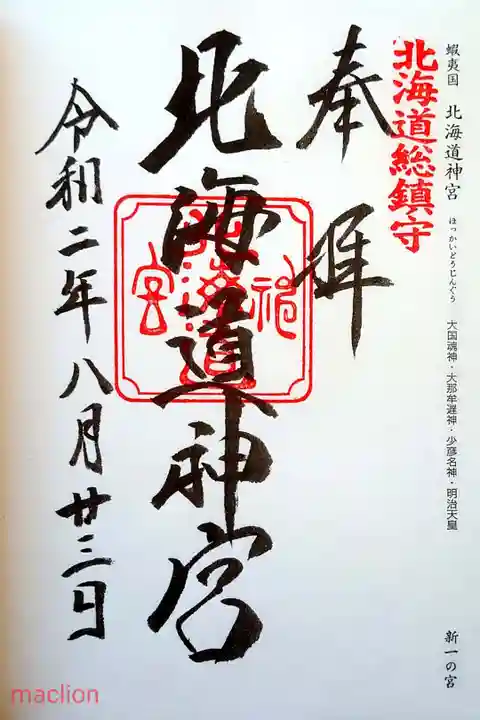 蝦夷国 北海道神宮 ほっかいどうじんぐう 大国魂神・大那牟遅神・少彦名神・明治天皇 新一の宮
北海道総鎮守
奉拝
北海道神宮
令和二年八月廿三日
maclion